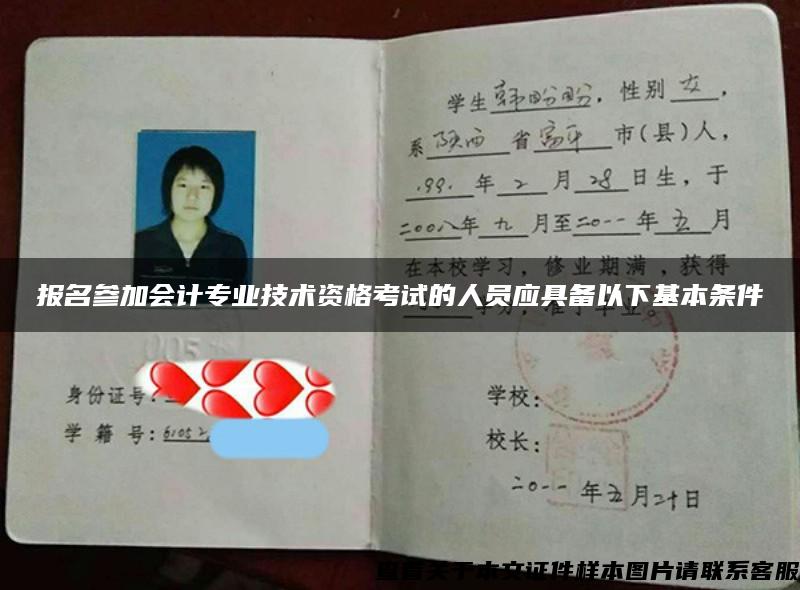 学生韩盼盼，性别女，
系陕西省富平市(县)人，
1991年2月28日生，于
二00八年九月至二0一一年五月
在本校学习，修业期满，获得
报名参加会计专业技术资格考试的人员应具备以下基本条件
学分，准予毕业。
005
身份证号：
学籍号：61052
学校：
校长：
二0一一年五月二十日
查看关于本文证件样本图片请联系客服